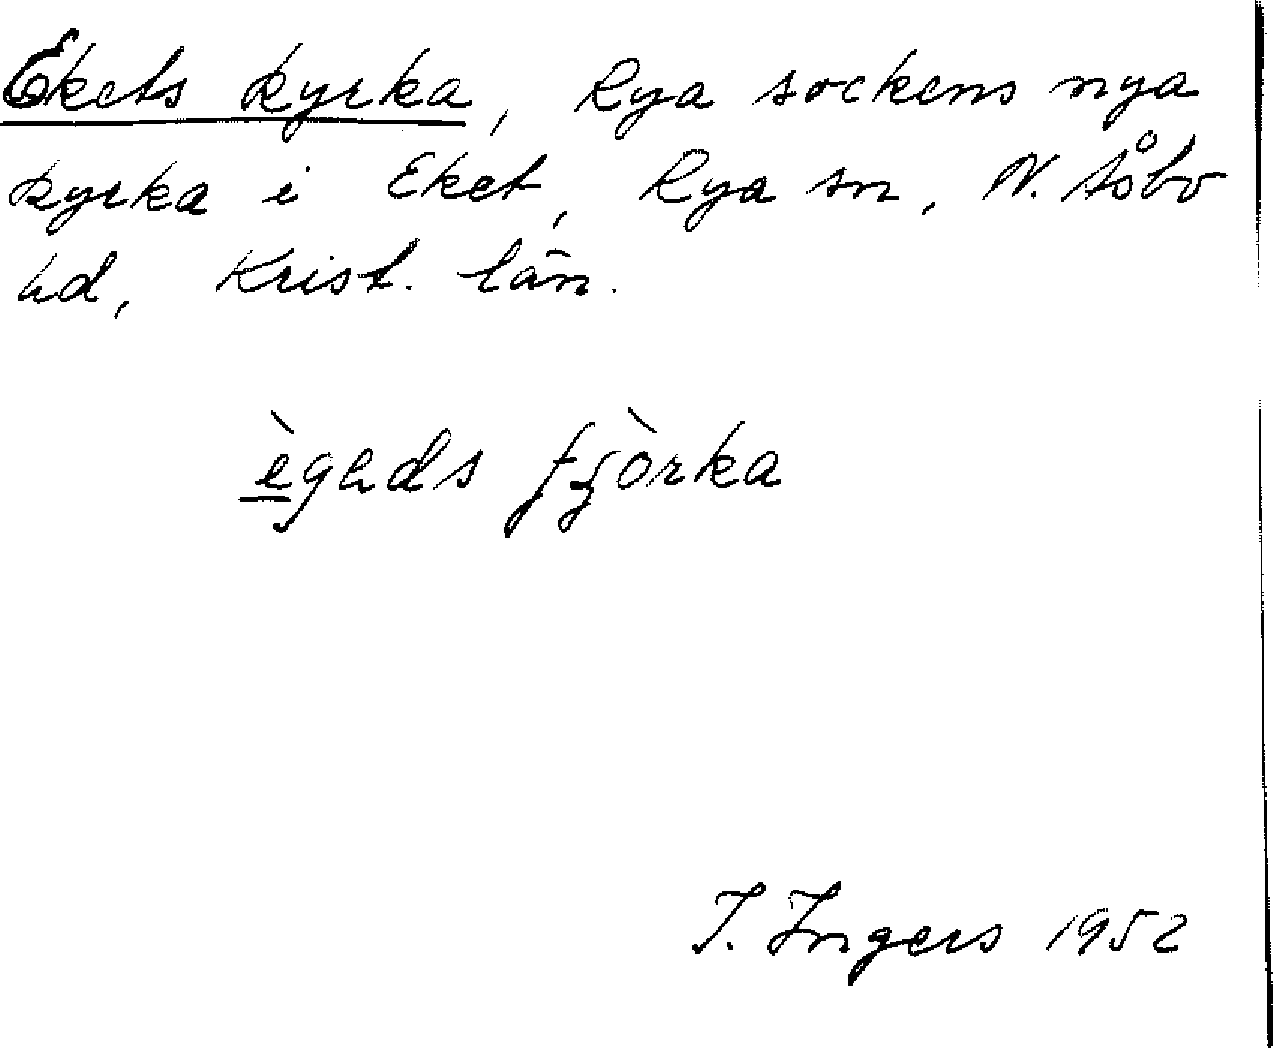 Ekets kyrka, Rya sockens nya
kyrka i Eket, Rya sn, N. Åsbo
hd, Krist. län.
I. Ingers 1952